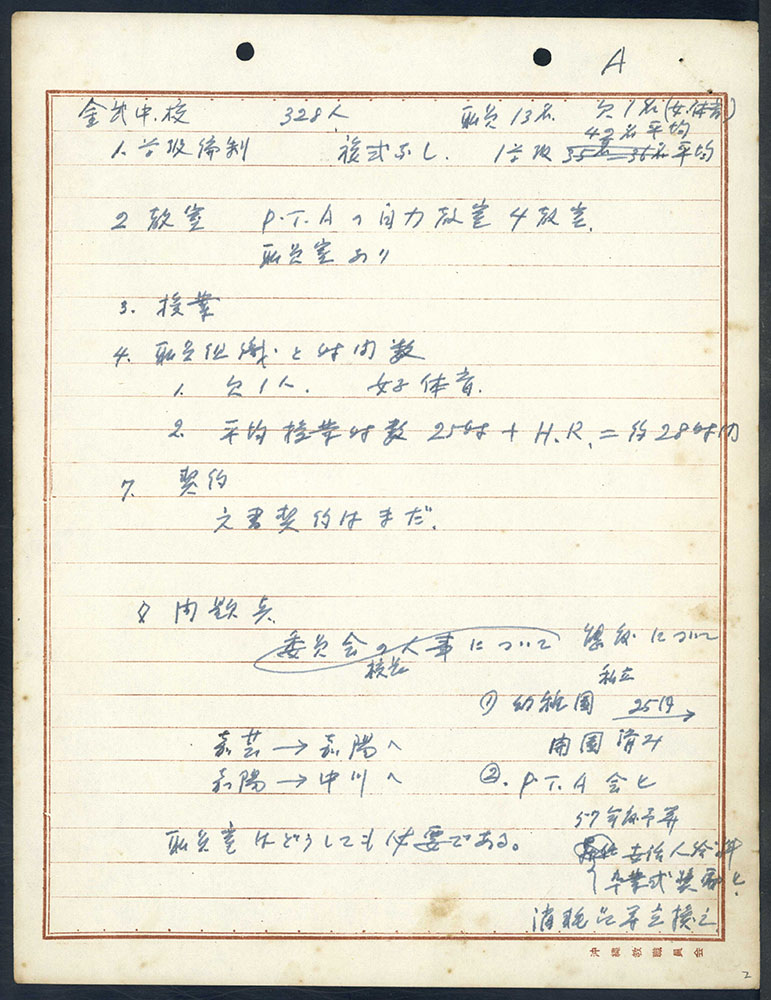 A
金武中校 328人 職員13名 欠1名(女.体育)
42名平均
1. 学級編制 複式なし. 1学級 35名—36名平均
2 教室 P.T.Aの自力教室4教室.
職員室あり
3. 授業
4. 職員組織と時間数
1. 欠1人. 女子体育.
2. 平均授業時数 25時 + H.R. = 約28時間
7. 契約
文書契約はまだ.
8 問題点
委員会の人事について
校長
について
私立
① 幼稚園 25日→
嘉芸→嘉陽へ 開園済み
嘉陽→中川へ ②. P.T.A会と
57年度予算
職員室はどうしても必要である。
卒業式
消耗品
沖繩教職員会
2